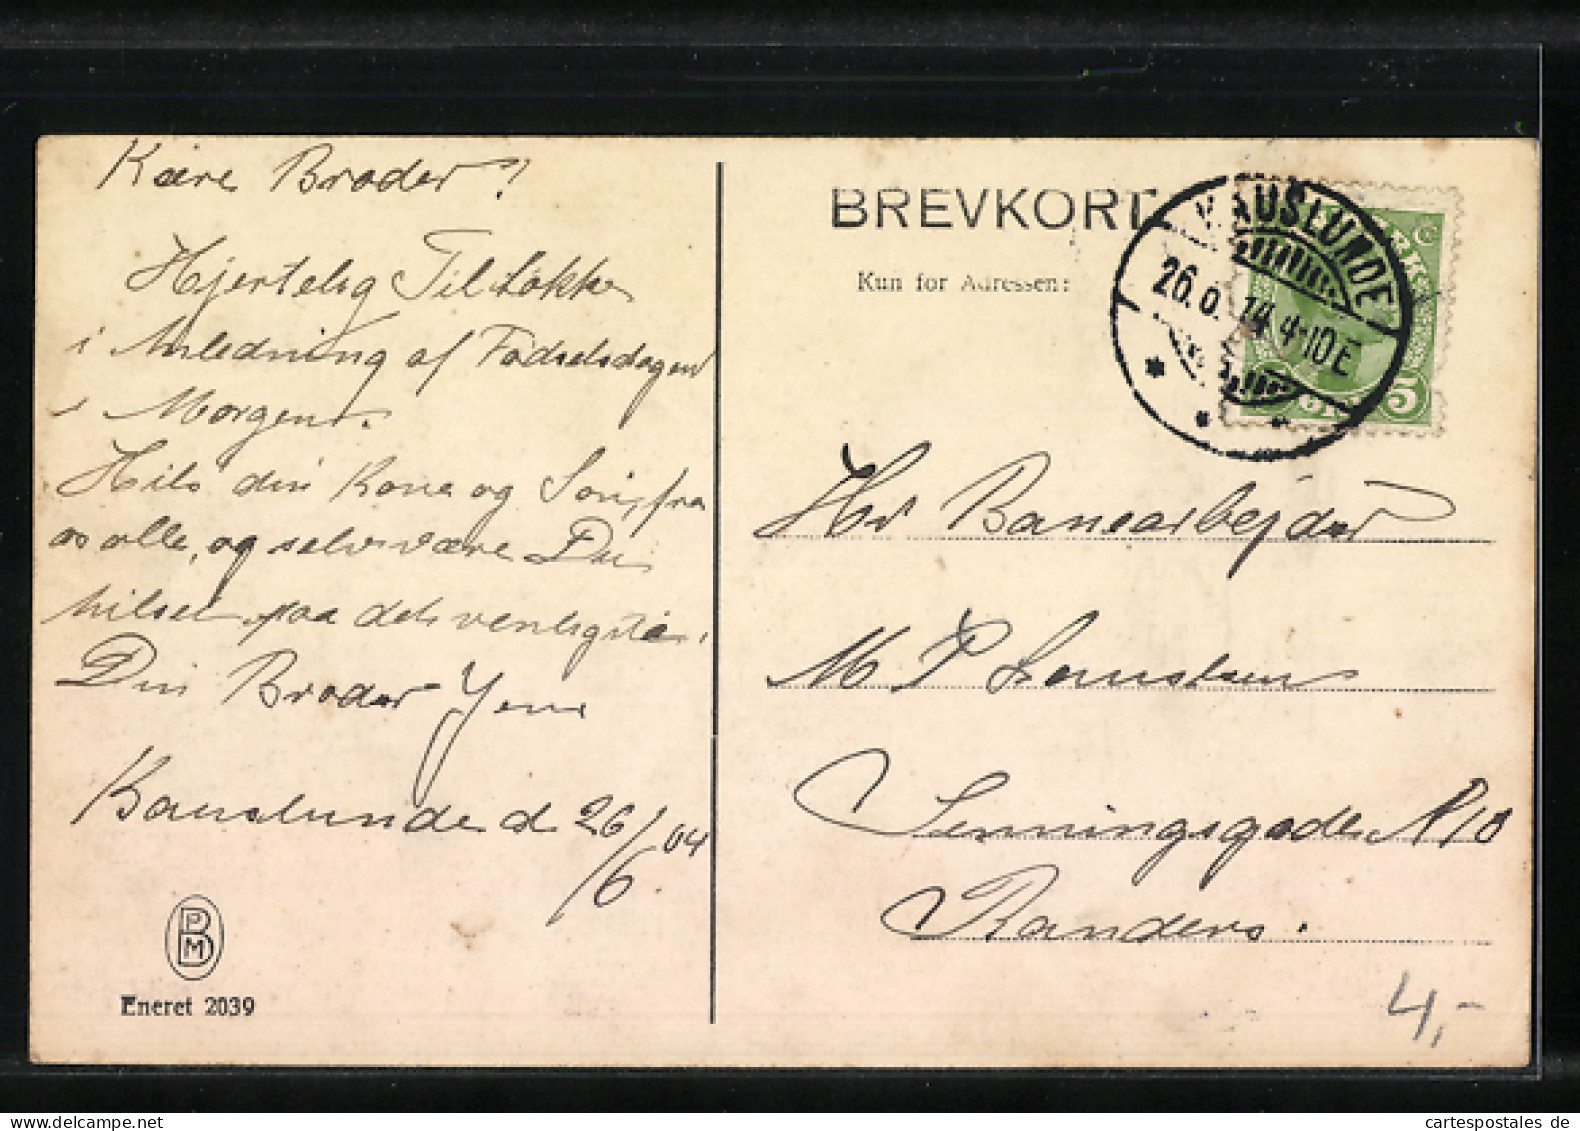 Kære Broder!
Hjertelig Til Lökke
i Anledning af Födselsdagen
i Morgen.
Hils din Kone og Sön, fra
os alle, og selv være Du
hilset paa det venligste.
Din Broder Jens
Kauslunde d 26/6 04
BPM
Eneret 2039
BREVKORT
Kun for Adressen:
KAUSLUNDE
26.6.14 4-10E
5
Hr Banearbejder
M P Laustsen
Lenningsgade N 10
Randers.
4,-
cartespostales de